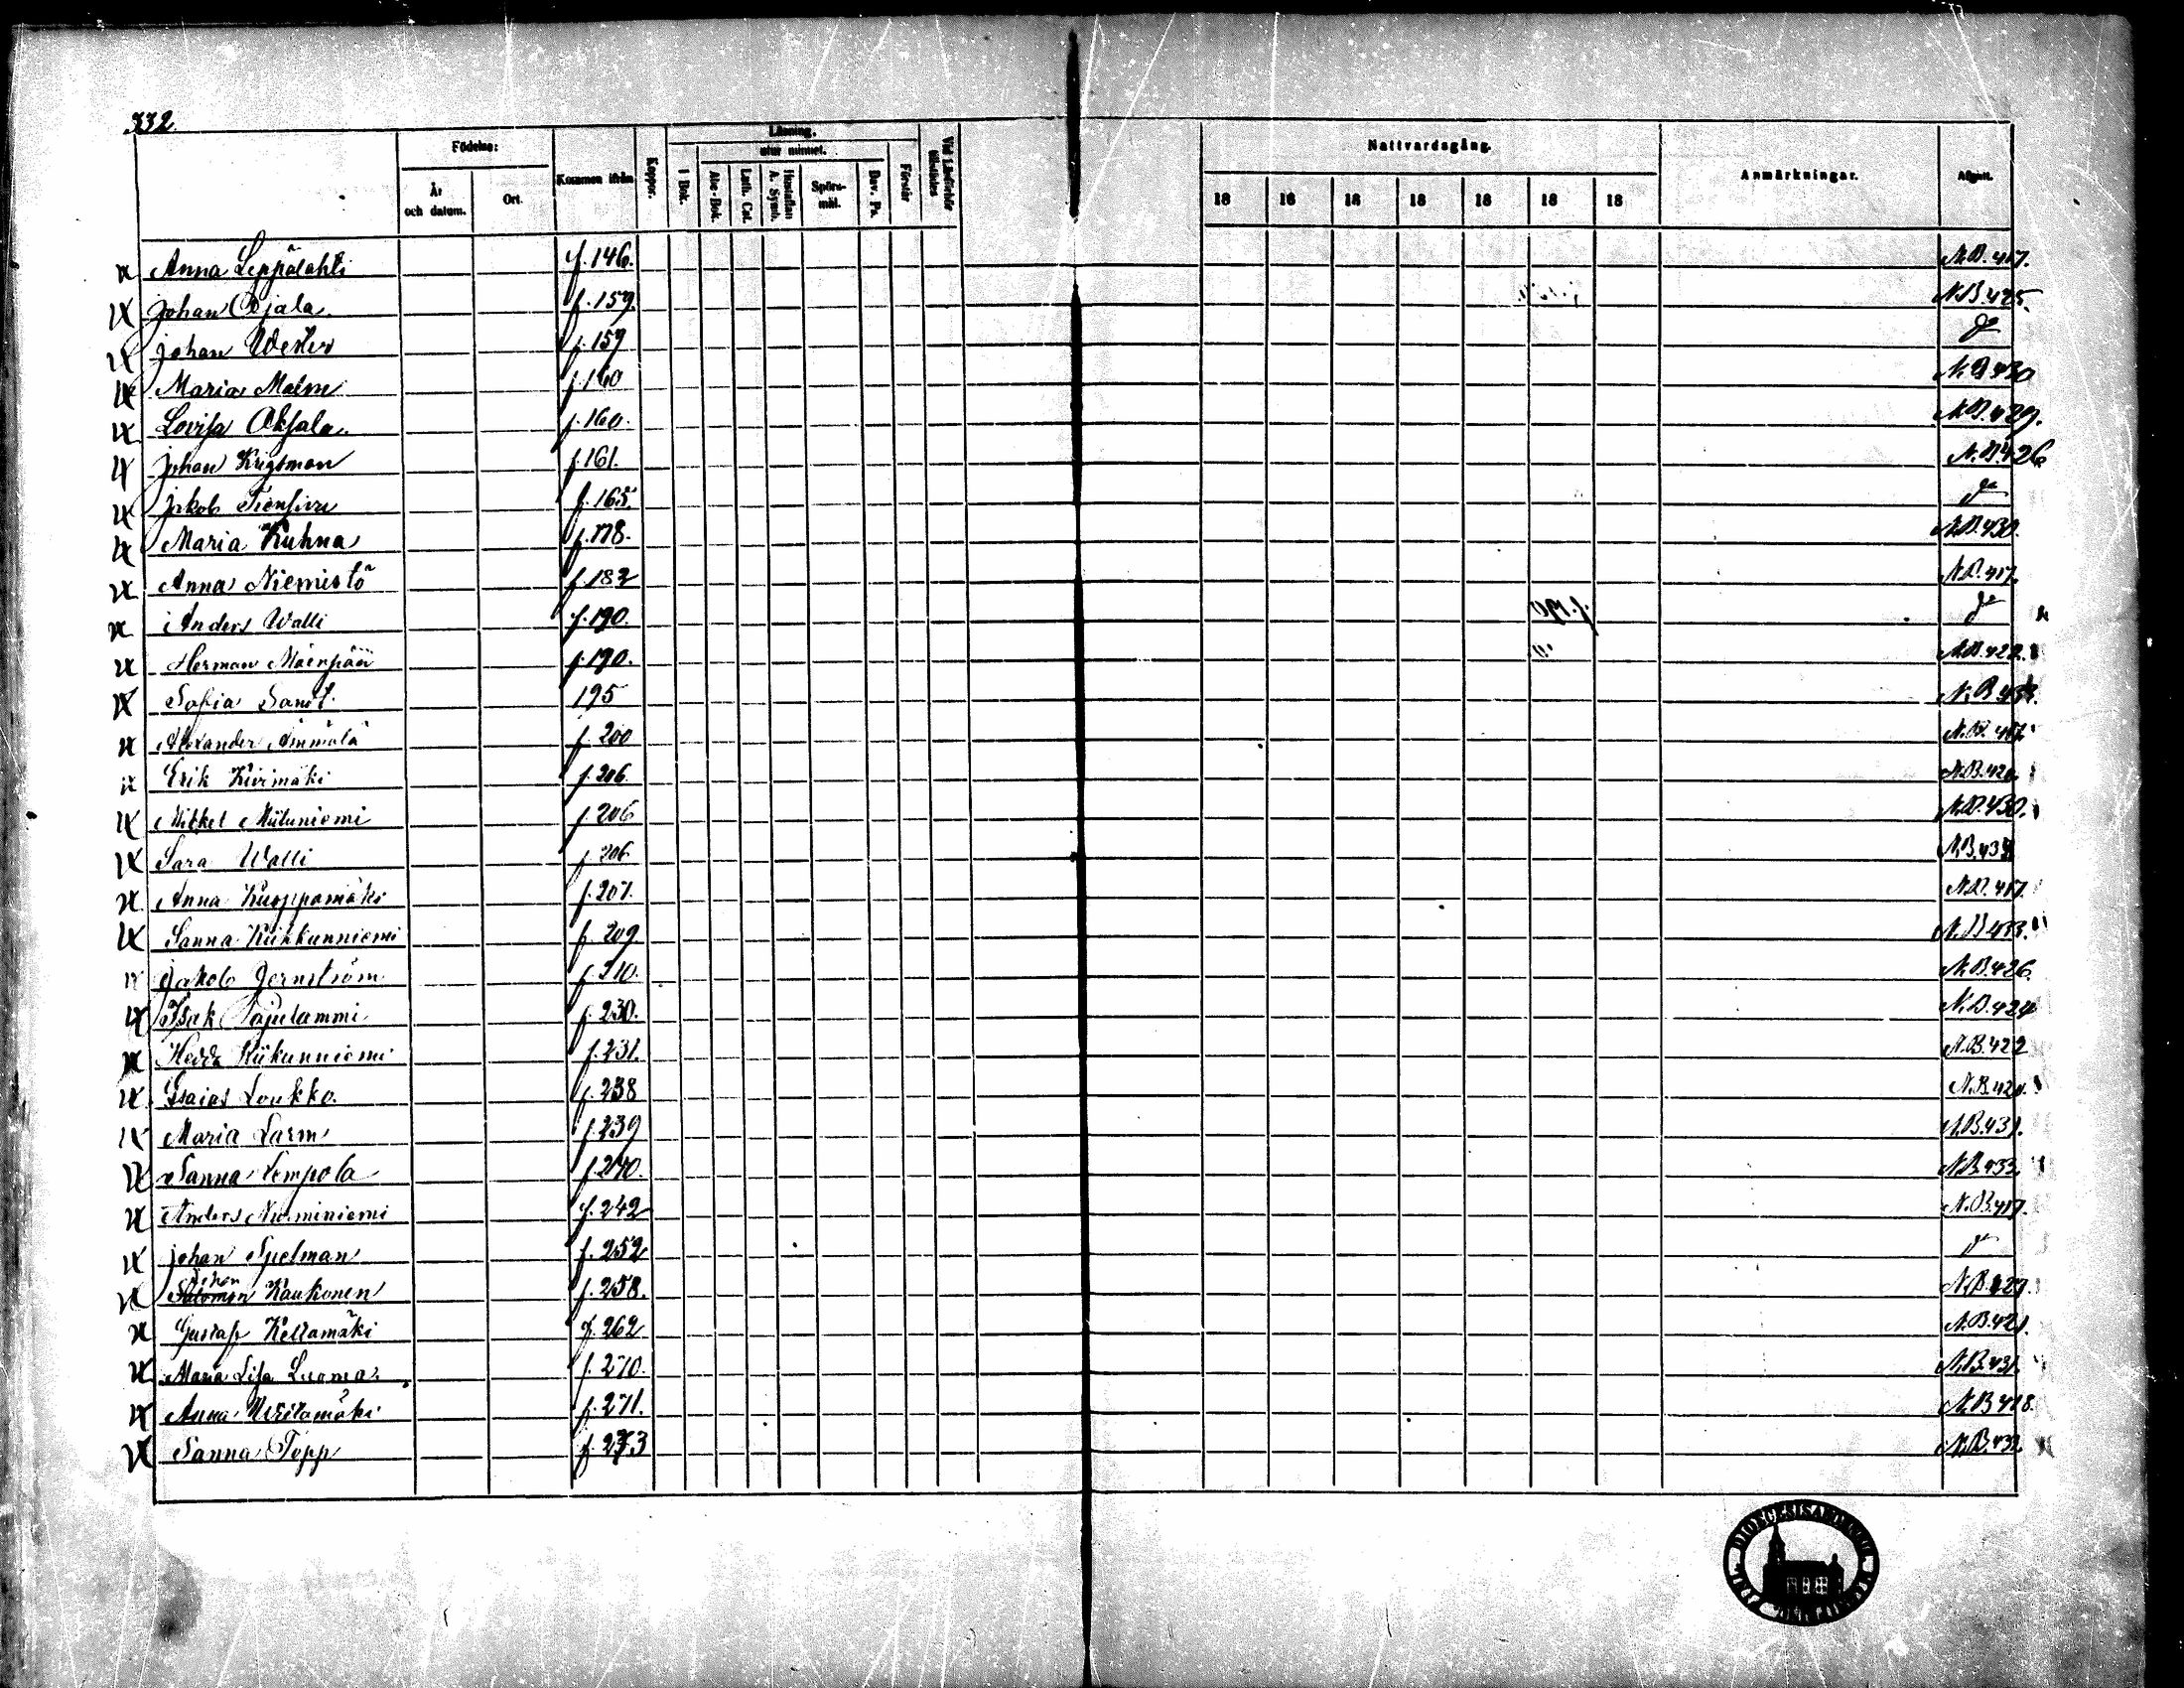 332
Födelse:
Läsning.
utur minnet.
Nattvardsgång.
År och datum.
Ort.
Kommen ifrån
Koppor.
I Bok.
Abc-Bok.
Luth. Cat.
Hustaflan A. Symb.
Spörsmål.
Dav. Ps.
Förstår
18 18 18 18 18 18 18
Anmärkningar.
Afgått.
Anna Leppälahti f. 146. N.B. 417.
Johan Ojala f. 159. N.B. 425.
Johan Wester f. 159 Ja
Maria Malm f. 160 N.B. 430
Lovisa Oksala. f. 160. N.B. 429.
Johan Krigsman f. 161. N.B. 426
Jakob f. 165. Ja
Maria Kuhna f. 178. N.B. 430.
Anna Niemistö f. 182 N.B. 417.
Anders Walli f. 190. Ja
Herman Mäenpää f. 190. N.B. 422.
Sofia Sand. 195 N.B. 433.
Alexander Ämmälä f. 200 N.B. 417.
Erik Kivimäki f. 206. N.B. 420.
Mikkel f. 206 N.B. 430.
Sara Walli f. 206 N.B. 433
Anna Kuoppamäki f. 207. N.B. 417.
Sanna Kiikkunniemi f. 209 N.B. 433.
Jakob Jernström f. 210. N.B. 426.
Isak Pajulammi f. 230. N.B. 424
Hedda Kiikunniemi f. 231. N.B. 422
Esaias Loukko. f. 238 N.B. 420.
Maria Larm f. 239 N.B. 431.
Sanna Lempola f. 240. N.B. 433.
Anders Nieminiemi f. 242 N.B. 417.
Johan Spelman f. 252 Ja
Johan
Salomon Kaukonen f. 258. N.B. 427.
Gustaf Keltamäki f. 262 N.B. 421.
Maria Lisa Luoma. f. 270. N.B. 431.
Anna f. 271. N.B. 418.
Sanna Topp f. 273 N.B. 433.